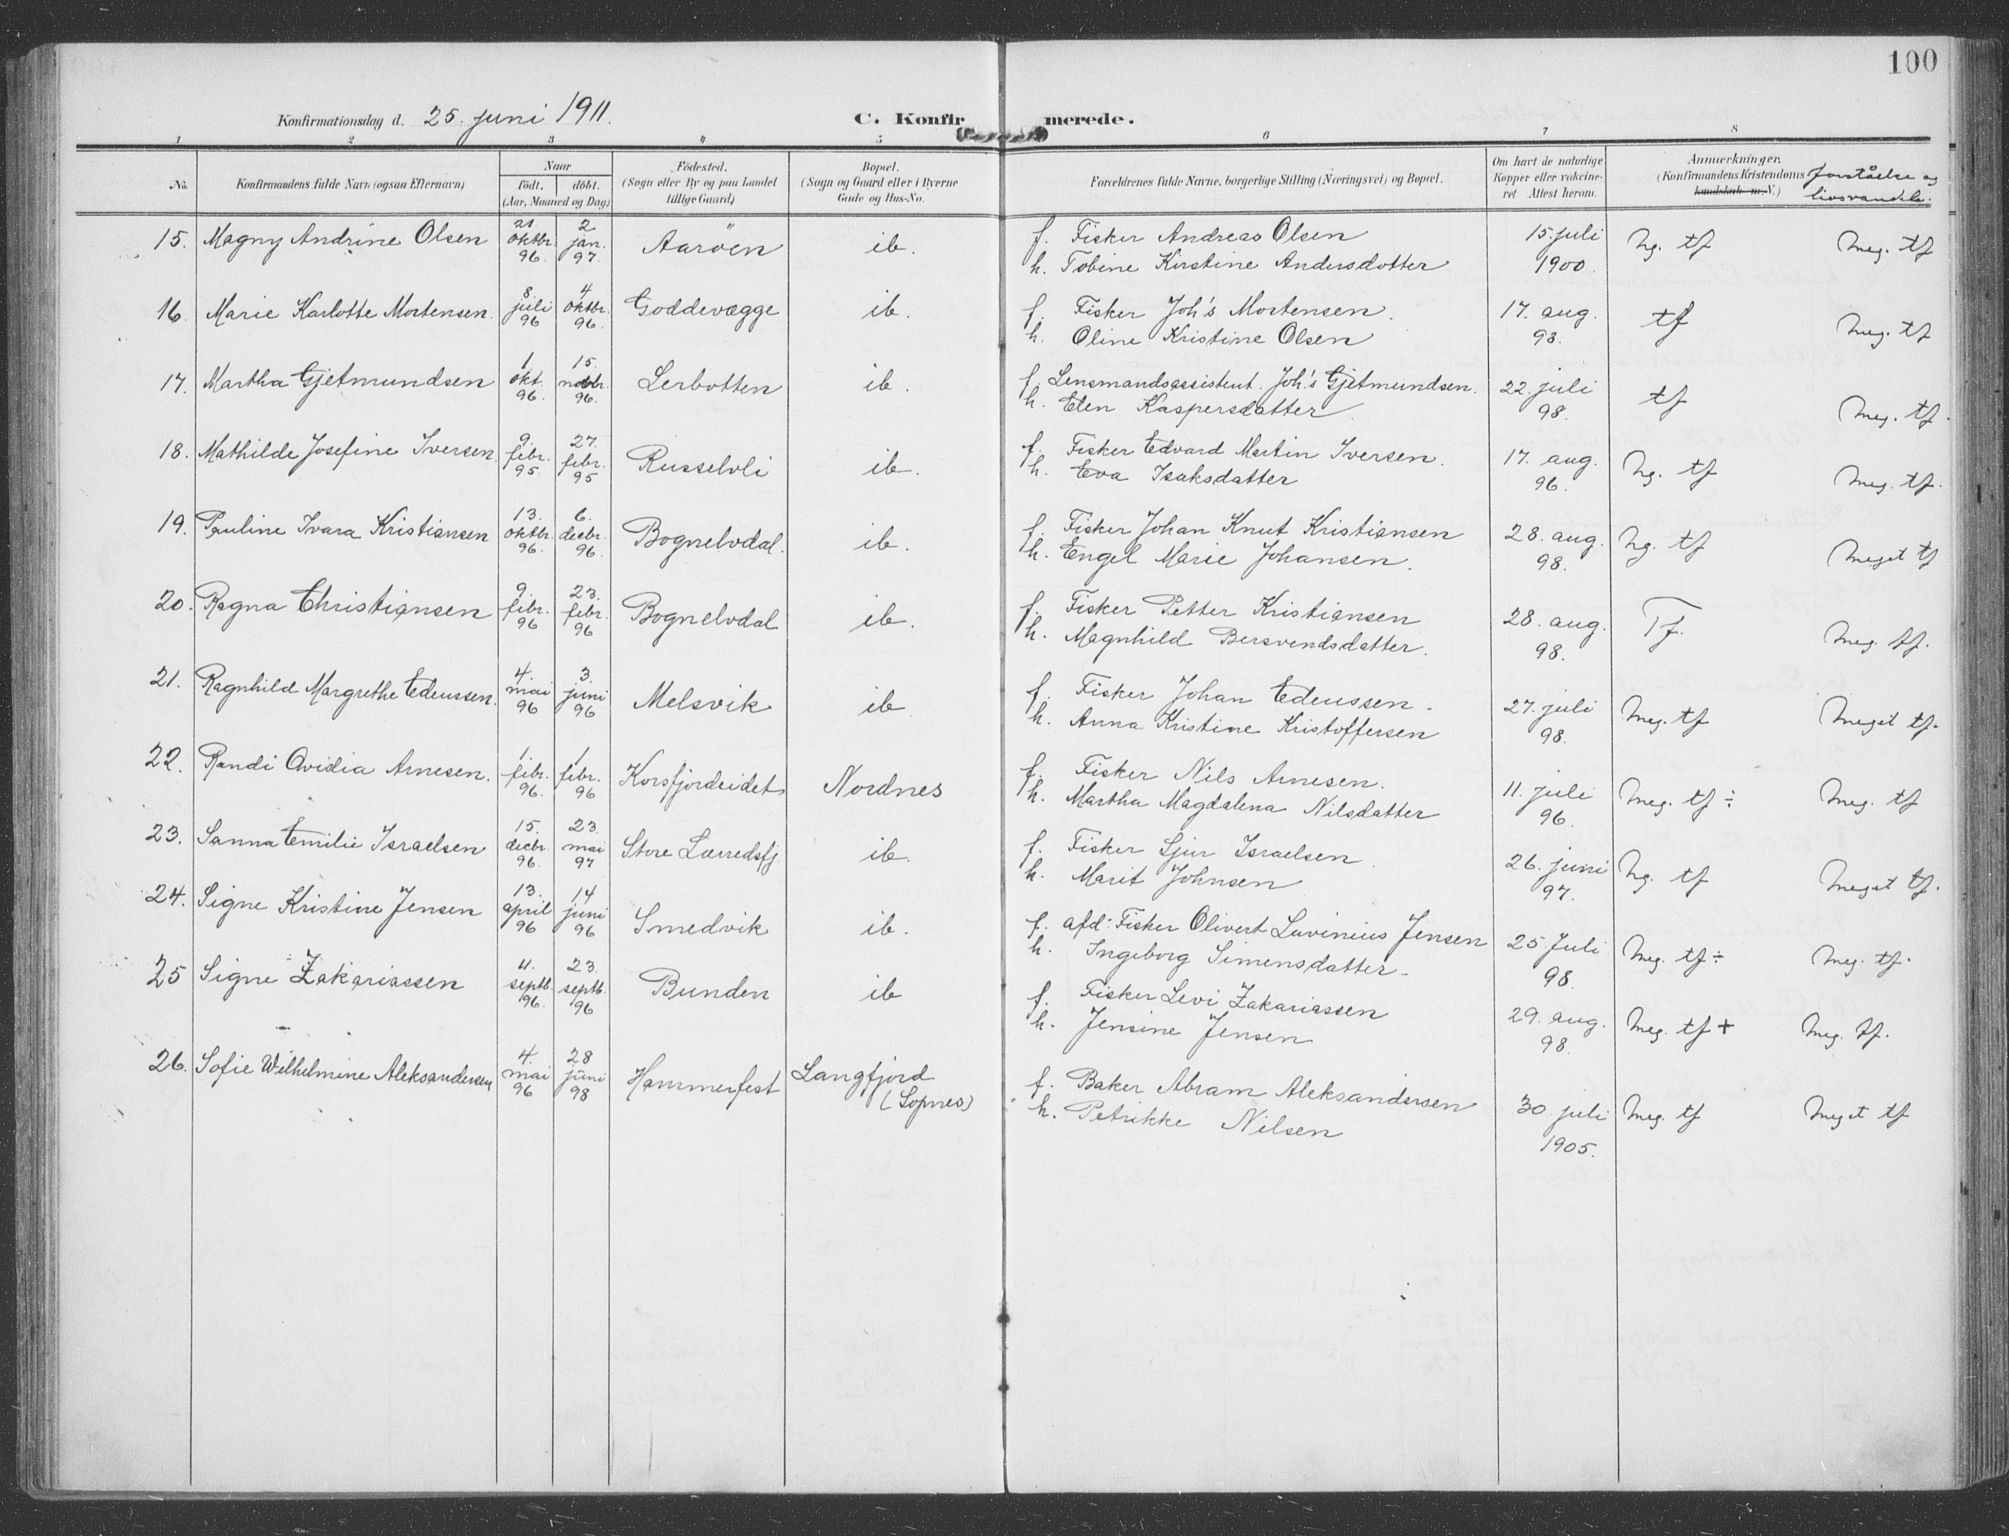 100
Konfirmationsdag d. 25. juni 1911. C. Konfirmerede.
1 2 3 4 5 6 7 8
No. Konfirmandens fulde Navn (ogsaa Efternavn) Naar födt. döbt. (Aar, Maaned og Dag) Födested. (Sogn eller By og paa Landet tillige Gaard) Bopæl. (Sogn og Gaard eller i Byerne Gade og Hus-No. Forældrenes fulde Navne, borgerlige Stilling (Næringsvei) og Bopæl. Om havt de naturlige Kopper eller vakcineret Attest herom. Anmerkninger. (Konfirmandens Kristendoms kundskab m.V.) forståelse og livsvandel.
15. Magny Andrine Olsen 21. oktbr. 96. 2 jan. 97. Aaröen ib. f. Fisker Andreas Olsen 15. juli 1900. Ng. tf Meg. tf
h. Tobine Kirstine Andersdatter
16. Marie Karlotte Mortensen. 8. juli 96 4 oktbr. 96. Goddevægge ib. f. Fisker Joh's Mortensen. 17. aug. 98. tf Meg. tf
h. Oline Kristine Olsen
17. Martha Gjetmundsen 1 okt. 96. 15. novbr. 96. Lerbotten ib. f. Lensmandsassistent. Joh's Gjetmundsen. 22. juli 98. tf Meg. tf.
h. Elen Kaspersdatter
18. Mathilde Josefine Iversen. 9. febr. 95. 27. febr. 95 Russelvli ib. f. Fisker Edvard Martin Iversen. 17. aug. 96. Ng. tf Meg. tf.
h. Eva Isaksdatter
19. Pauline Ivara Kristiansen 13. oktbr. 96. 6. decbr. 96. Bognelvdal. ib. f. Fisker Johan Knut Kristiansen 28. aug. 98. Ng. tf Meget tf
h. Engel Marie Johansen.
20. Ragna Christiansen 9. febr. 96 23. febr. 96 Bognelvdal ib. f. Fisker Petter Kristiansen 28. aug. 98. Tf. Meg. tf.
h. Magnhild Bersvendsdatter.
21. Ragnhild Margrethe Edeussen. 4. mai 96 3. juni 96 Melsvik ib f. Fisker Johan Edeussen. 27. juli 98. Meg. tf Meget tf.
h. Anna Kristine Kristoffersen
22. Randi Ovidia Arnesen. 1. febr. 96. 1 febr. 96 Korsfjordeidet Nordnes f. Fisker Nils Arnesen. 11. juli 96. Meg. tf ÷ Meg. tf
h. Martha Magdalena Nilsdatter
23. Sanna Emilie Israelsen 15. decbr. 96. 23. mai 97 Store Lerredsfj. ib. f. Fisker Sjur Israelsen. 26. juni 97. Ng. tf Meget tf.
h. Marit Johnsen
24. Signe Kristine Jensen 13. april 96 14 juni 96 Smedvik ib. f. afd: Fisker Olivert Lavinius Jensen 25. Juli 98. Meg. tf ÷ Meg. tf.
h. Ingeborg Simensdatter.
25 Signe Zakariassen 11. septb. 96. 23. septb. 96 Bunden ib f. Fisker Levi Zakariassen 29. aug. 98. Meg. tf + Meg. tf.
h. Jensine Jensen
26. Sofie Wilhelmine Aleksandersen 4. mai 96 28 juni 98 Hammerfest Langfjord (Sopnes) f. Baker Abram Aleksandersen 30. juli 1905. Meg. tf Meget tf
h. Petrikke Nilsen